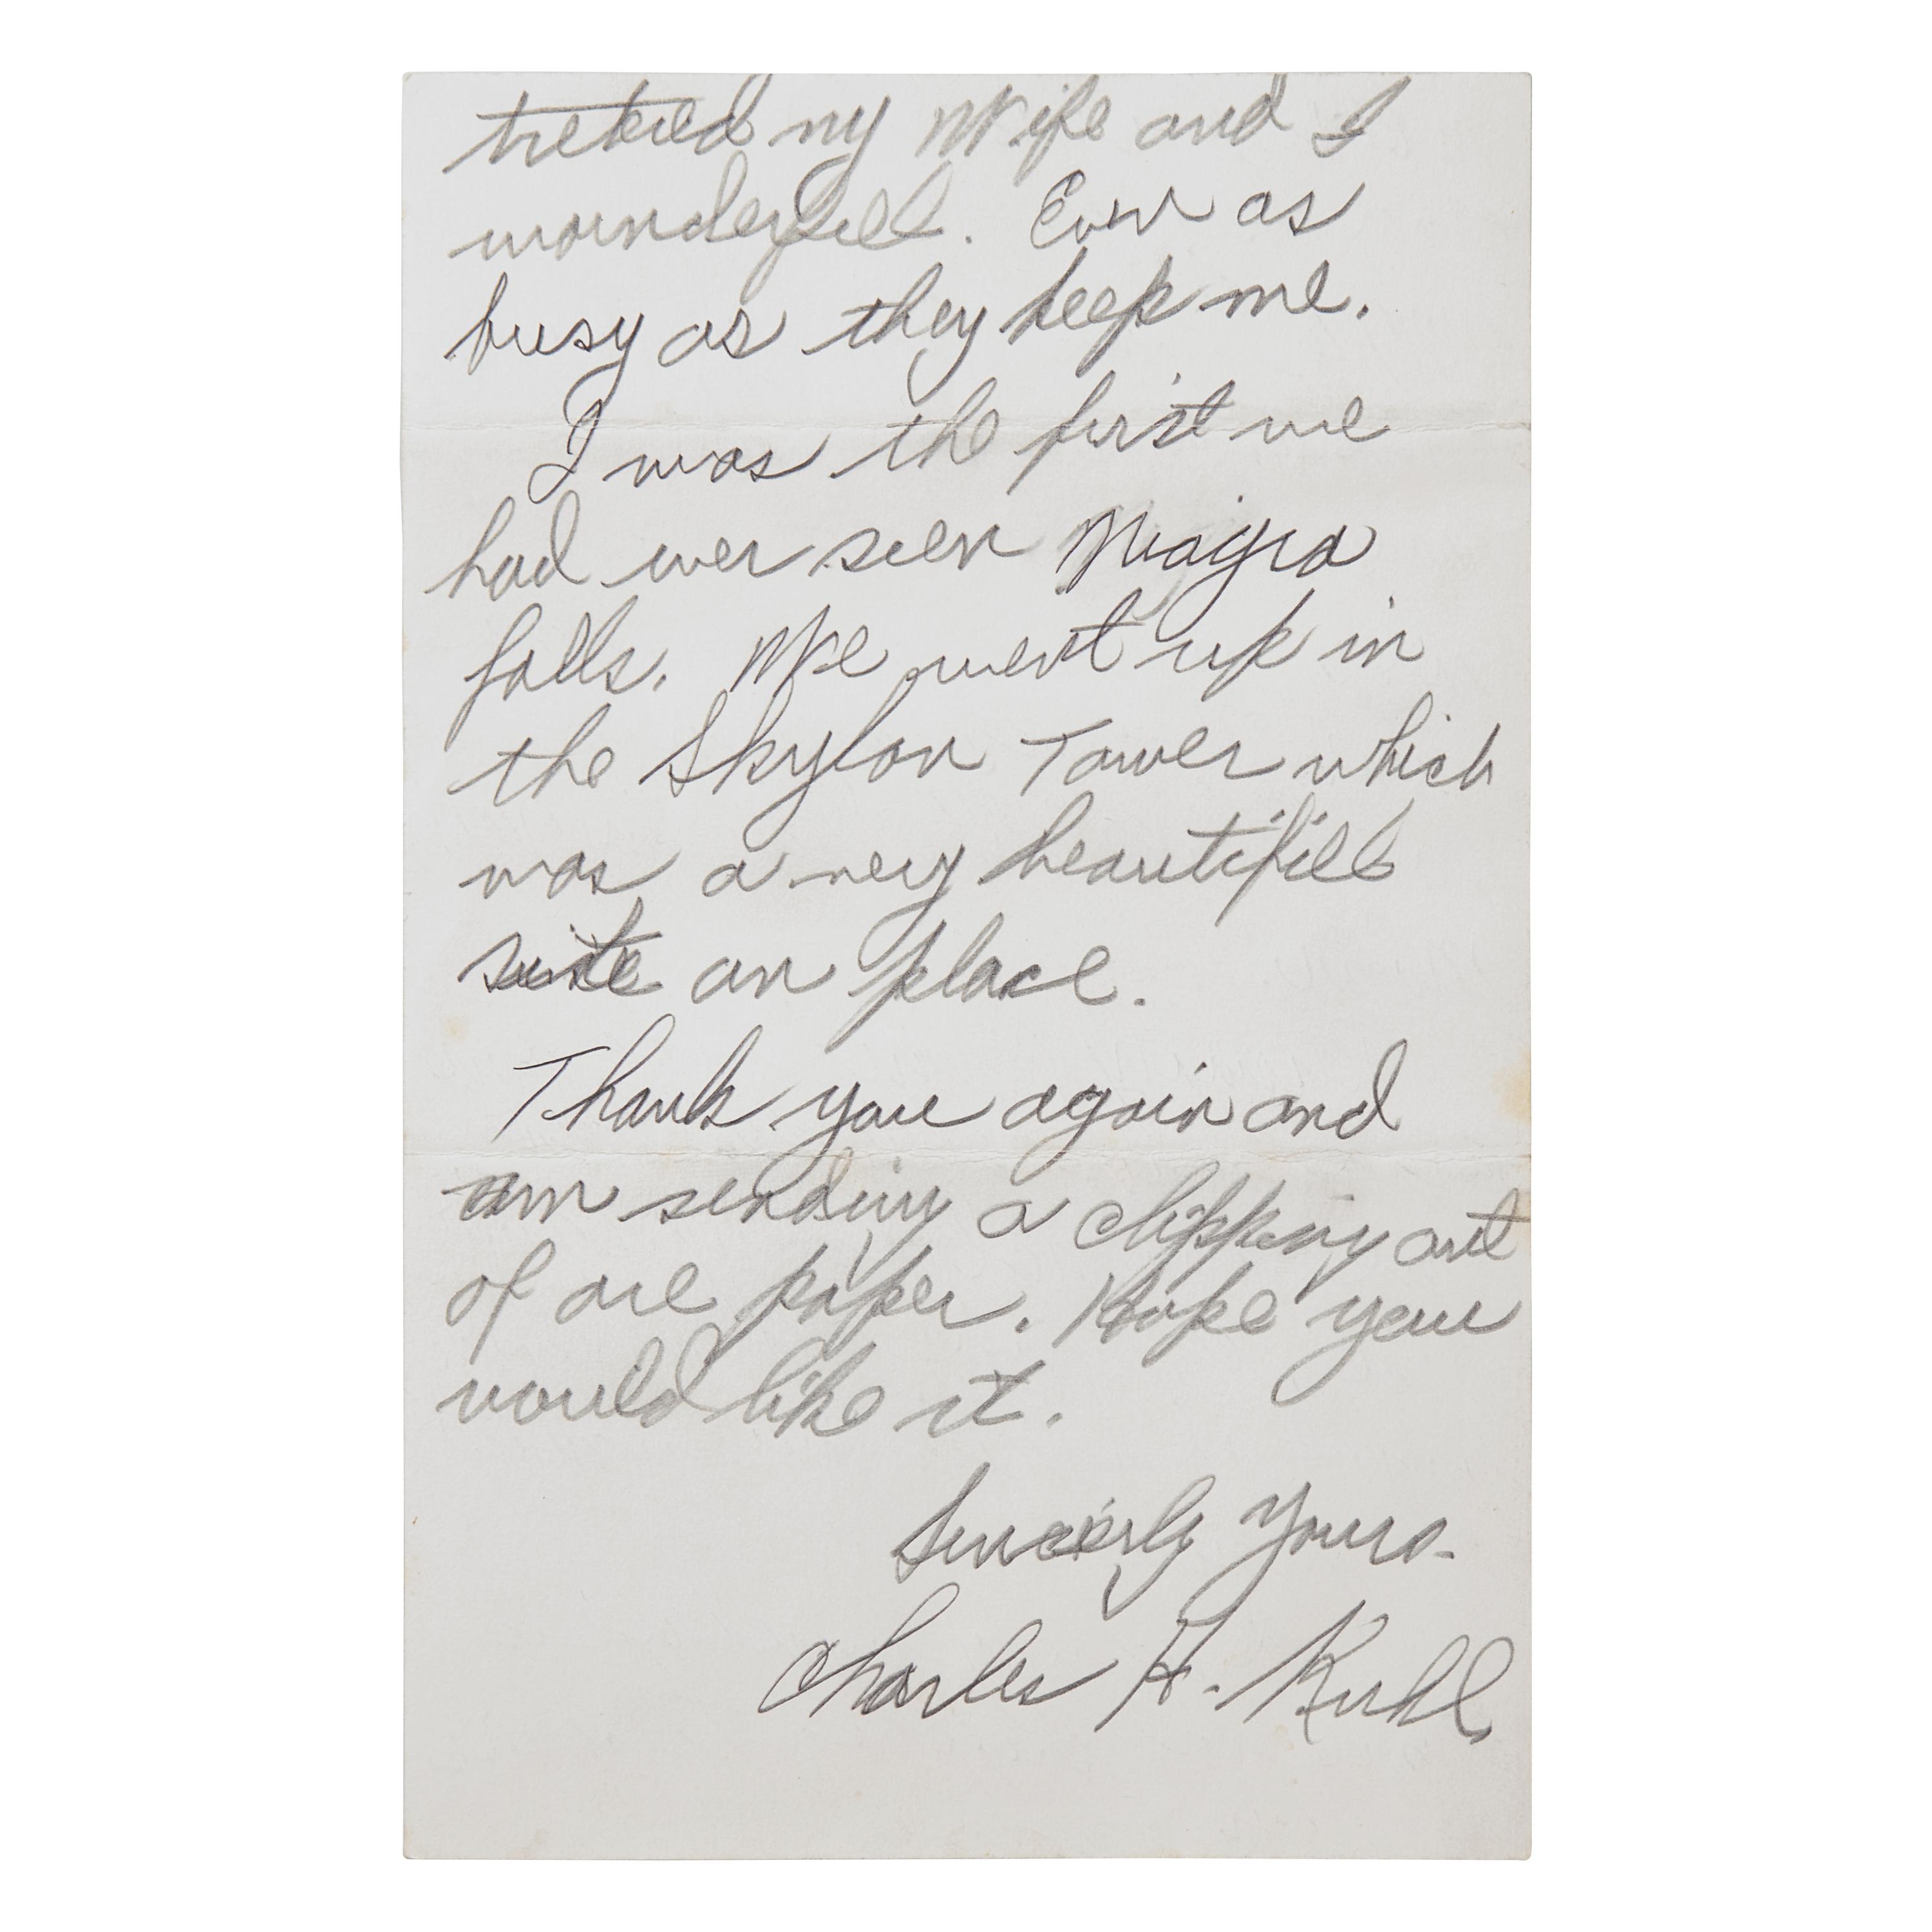 treted my Wife and I
wounderfull. Even as
busy as they keep me.
I was the first we
had ever seen Niagra
falls. We went up in
the Skylon Tower which
was a very beautifull
site an place.
Thank you again and
am sending a clipping out
of are paper. Hope you
would like it.
Sincerly Yours.
Charles H. Kuhl